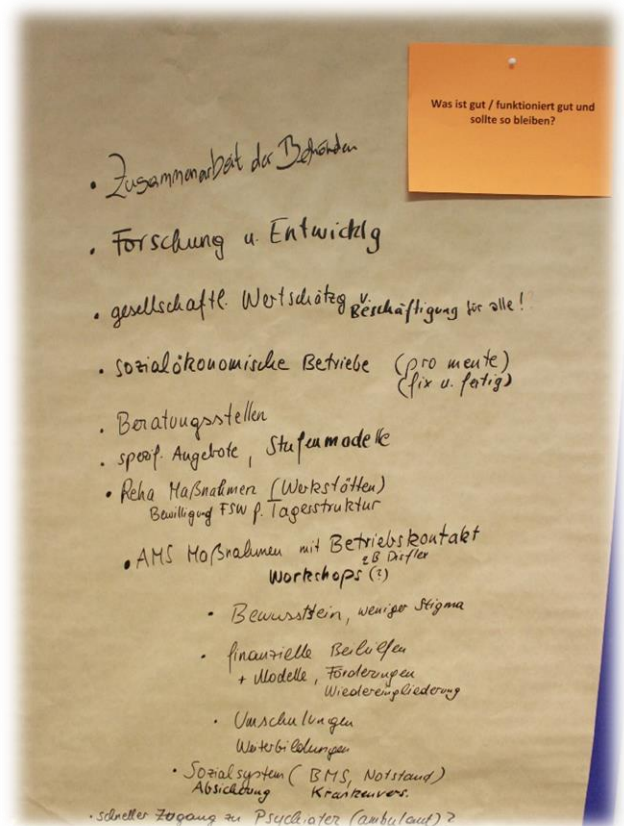 Was ist gut / funktioniert gut und
sollte so bleiben?
• Zusammenarbeit der Behörden
• Forschung u. Entwicklg
• gesellschaftl. Wertschätzg u. Beschäftigung für alle!
• sozialökonomische Betriebe (pro mente)
(fix u. fertig)
• Beratungsstellen
• spezif. Angebote, Stufenmodelle
• Reha Maßnahmen (Werkstätten)
Bewilligung FSW f. Tagesstruktur
• AMS Maßnahmen mit Betriebskontakt
zB
Workshops (?)
• Bewusstsein, weniger Stigma
• finanzielle Beihilfen
+ Modelle, Förderungen
Wiedereingliederung
• Umschulungen
Weiterbildungen
• Sozialsystem (BMS, Notstand)
Absicherung Krankenvers.
• schneller Zugang zu Psychiater (ambulant)?